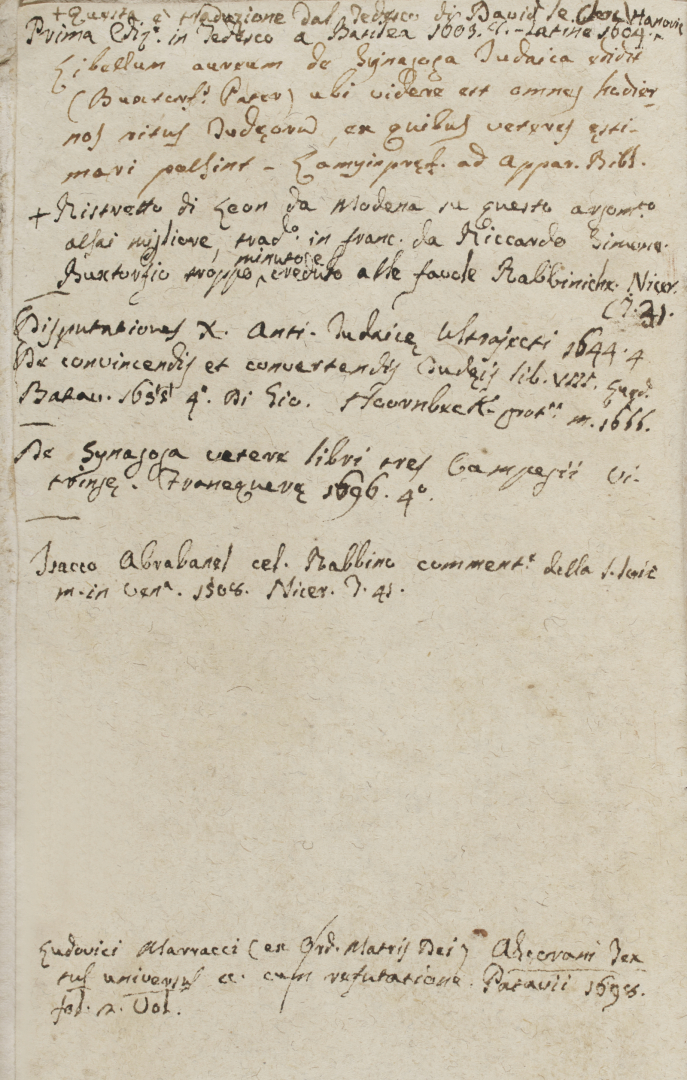 + Questa è traduzione dal Tedesco di David le Clerc Hanovie
Prima Ediz.e in Tedesco a Basilea 1603. 8. - Latine 1604.
Libellum aureum de Synagoga Judaica edidit
(Buxtorf.s Pater) ubi videre est omnes hodier
nos ritus Judęorũ, ex quibus veteres ęsti-
mari possint - Lamy in pręf. ad Appar. Bibl.
+ Ristretto di Leon da Modena su questo argom.to
assai migliore, trad.o in franc. da Riccardo Simone.
Buxtorfio troppo minuto e credulo alle favole Rabbiniche. Nicer.
(T. 31.
Disputationes X. Anti-Judaicę Ultrajecti 1644. 4
De convincendis et convertendis Judęis lib. VIII. Lugd.
Batav. 1655 4.o Di Gio. Hoornbeek prot. m. 1666.
De Synagoga vetere libri tres Campegii Vi-
tringę. Franequerę 1696. 4o.
Isacco Abrabanel cel. Rabbino comment.e della S. Scrit
m. in Ven.a 1508. Nicer. T. 41.
Ludovici Marracci (ex Ord. Matris Dei) Alcorani Tex
tus universus &c. cum refutatione. Patavii 1698.
fol. 2. Vol.